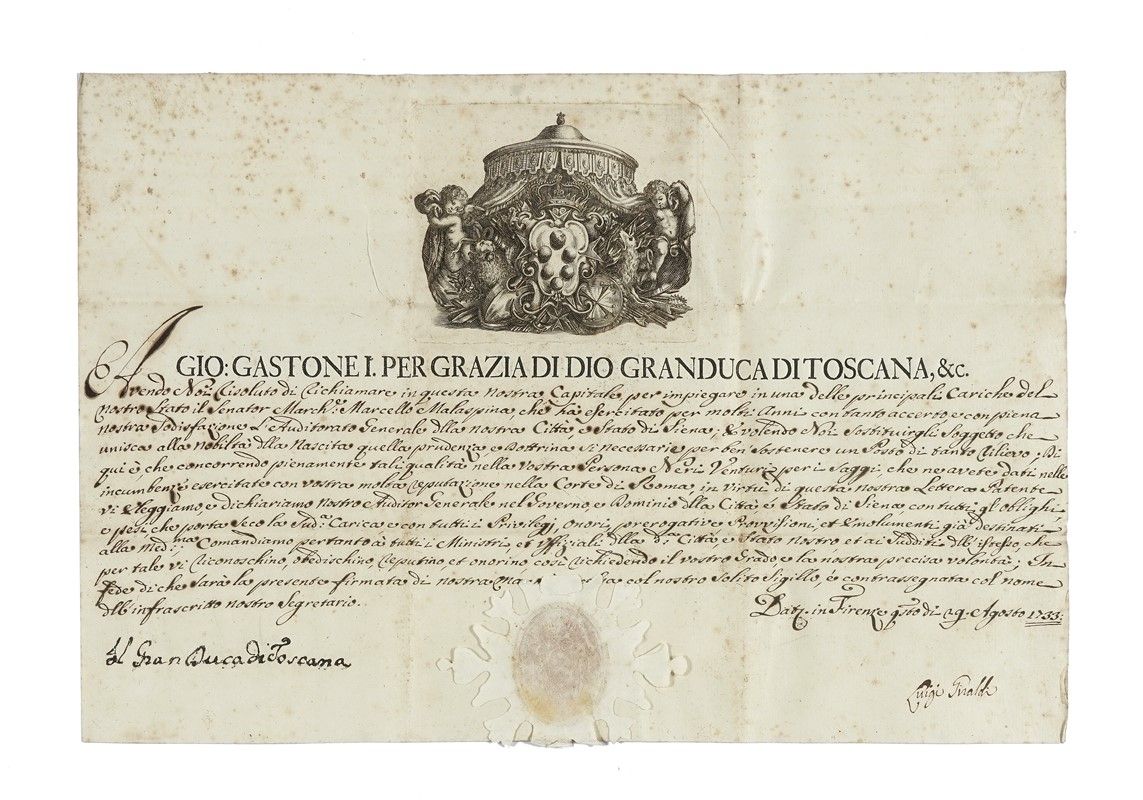 GIO: GASTONE I. PER GRAZIA DI DIO GRANDUCA DI TOSCANA, &c.
Avendo Noi Risoluto di Richiamare in questa nostra Capitale per impiegare in una delle principali Cariche del
nostro Stato il Senator March: Marcello Malaspina, che ha esercitato per molti Anni con tanto accerto e con piena
nostra Sodisfazione L'Auditorato Generale dlla nostra Città e Stato di Siena; E volendo Noi Sostituirgli Soggetto che
unisca alla Nobiltà dlla Nascita quella prudenza e Dottrina sì necessarie per ben Sostenere un Posto di tanto Rilievo; Di
qui è che concorrendo pienamente tali qualità nella Vostra Persona Neri Venturi per i Saggi, che ne avete dati nelle
incumbenze esercitate con vostra molta reputazione nella Corte di Roma in Virtù di questa nostra Lettera Patente
Vi Eleggiamo, e dichiariamo nostro Auditor Generale nel Governo, e Dominio dlla Città e Stato di Siena con tutti gl'obblighi
e pesi che porta Seco la Sud.a Carica e con tutti i Privilegj, onori, prerogative Provvisioni, et Emolumenti già destinati
alla Med:ma Comandiamo pertanto à tutti i Ministri, et Uffiziali dlla d.a Città e Stato nostro et ai Sudditi dll'istesso, che
per tale Vi Riconoschino, obedischino, Reputino et onorino, così richiedendo il vostro Grado e la nostra precisa volontà; In
fede di che Sarà la presente firmata di nostra col nostro Solito Sigillo, e contrassegnata col nome
dll'infrascritto nostro Segretario.
Dat. in Firenze qsto di 29. Agosto 1733.
Il Gran Duca di Toscana
Luigi